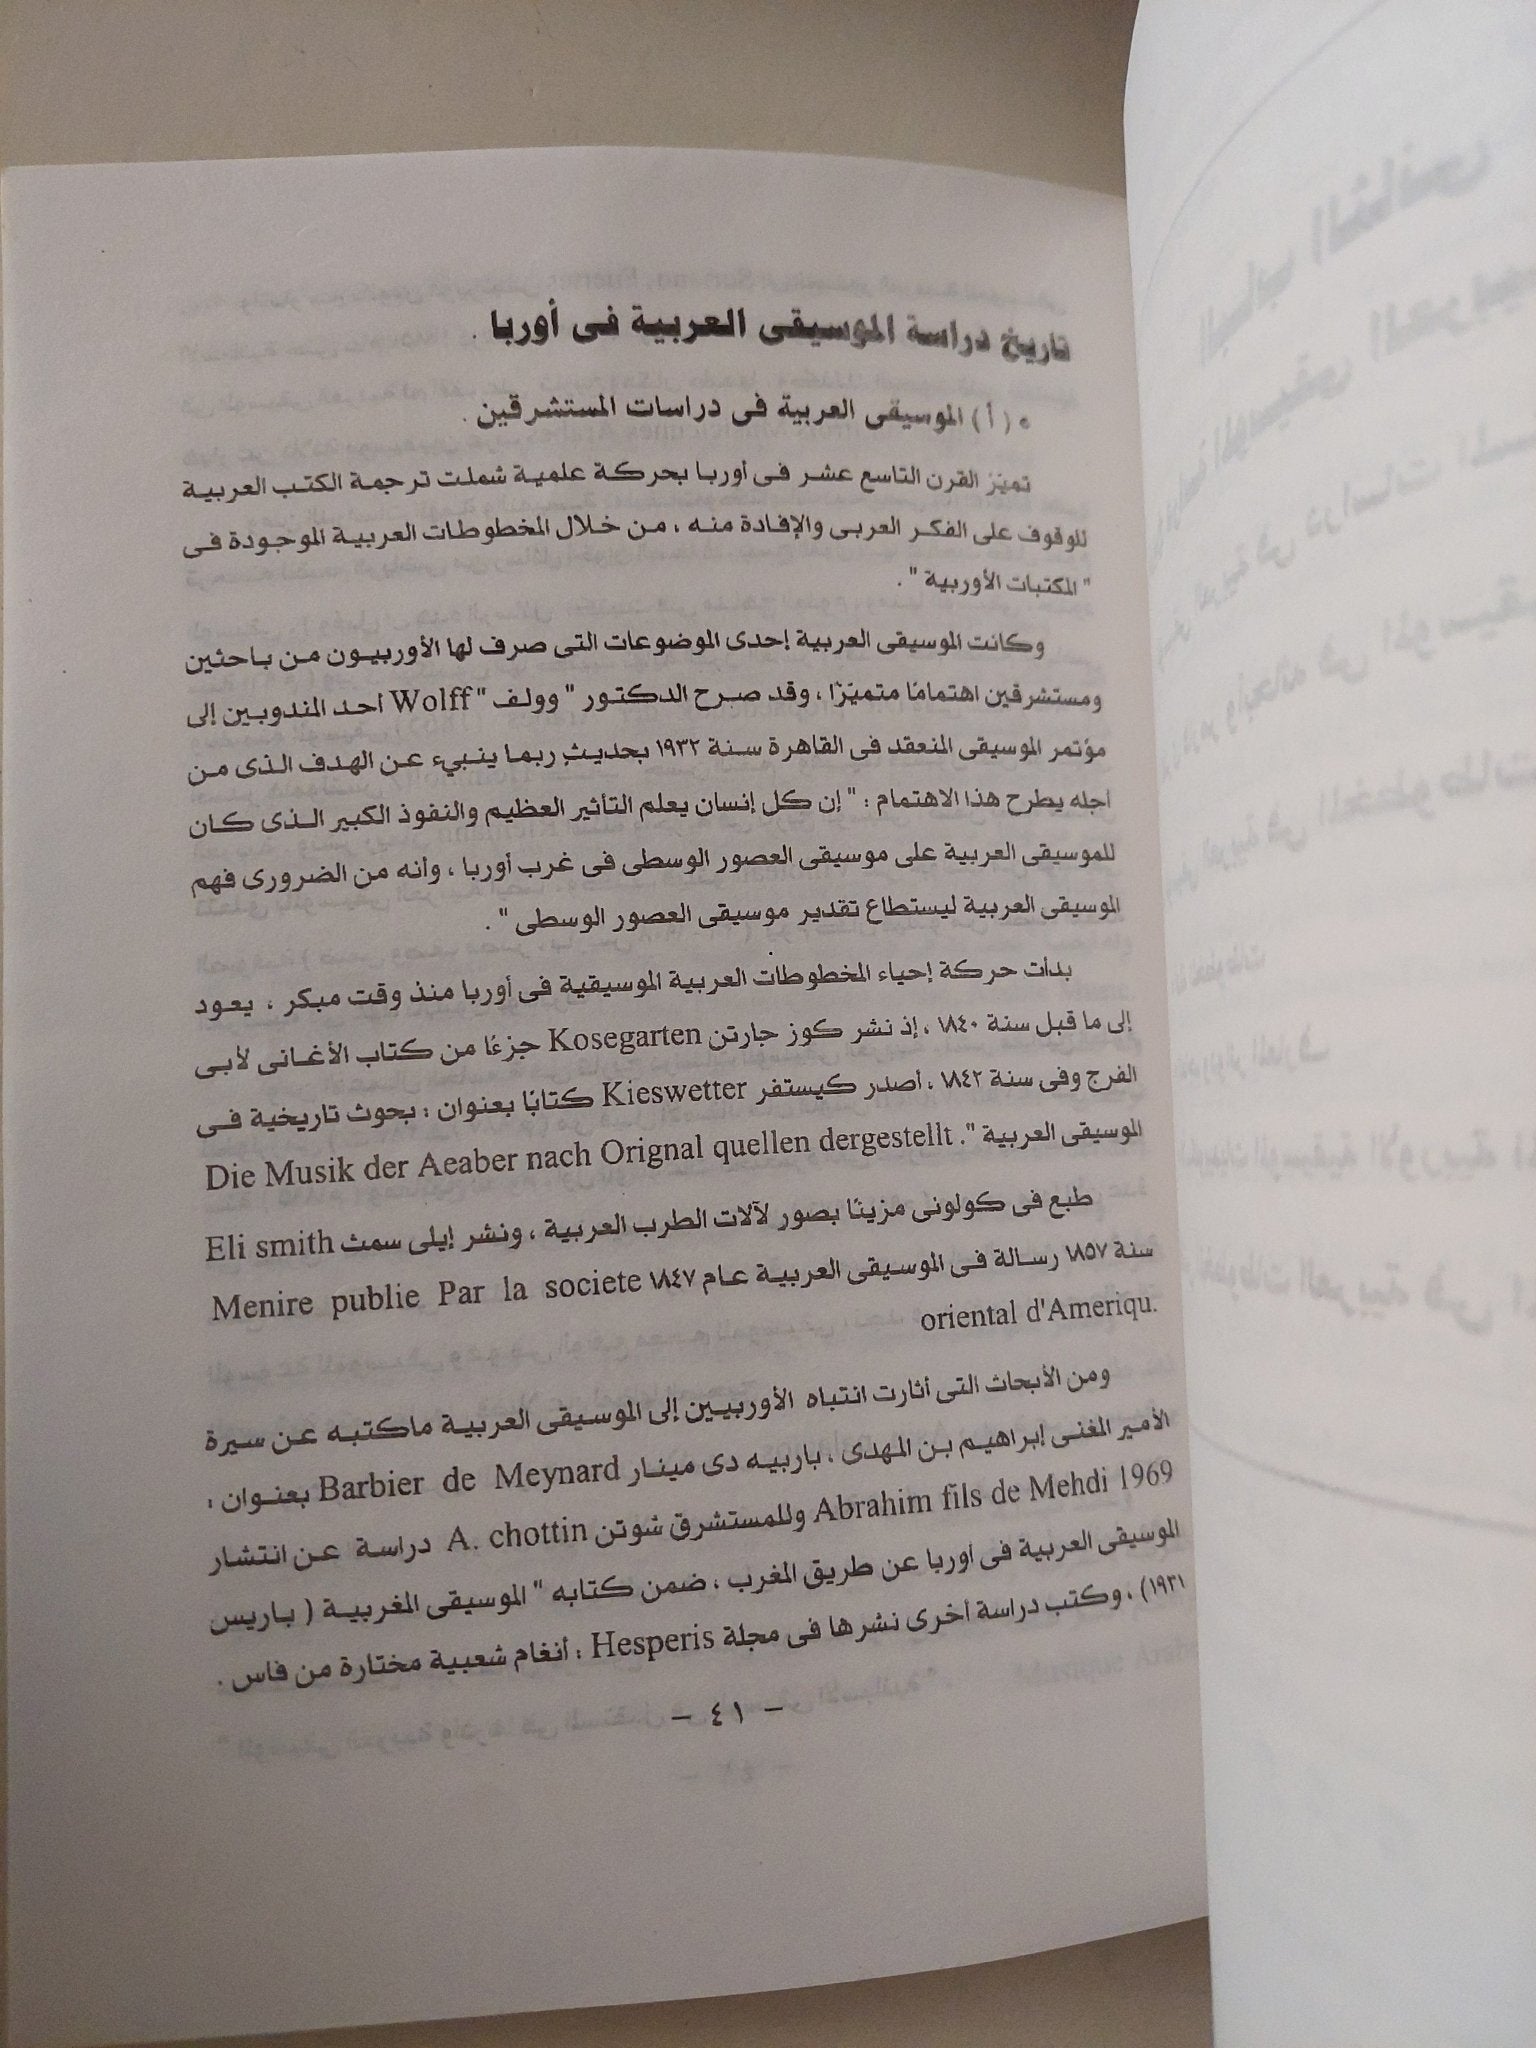 تاريخ دراسة الموسيقى العربية فى أوربا .
* ( أ ) الموسيقى العربية فى دراسات المستشرقين .
تميّز القرن التاسع عشر فى أوربا بحركة علمية شملت ترجمة الكتب العربية
للوقوف على الفكر العربى والإفادة منه ، من خلال المخطوطات العربية الموجودة فى
" المكتبات الأوربية " .
وكانت الموسيقى العربية إحدى الموضوعات التى صرف لها الأوربيون من باحثين
ومستشرقين اهتمامًا متميّزًا ، وقد صرح الدكتور " وولف " Wolff أحد المندوبين إلى
مؤتمر الموسيقى المنعقد فى القاهرة سنة ١٩٣٢ بحديثٍ ربما ينبيء عن الهدف الذى من
أجله يطرح هذا الاهتمام : " إن كل إنسان يعلم التأثير العظيم والنفوذ الكبير الذى كان
للموسيقى العربية على موسيقى العصور الوسطى فى غرب أوربا ، وأنه من الضرورى فهم
الموسيقى العربية ليستطاع تقدير موسيقى العصور الوسطى " .
بدأت حركة إحياء المخطوطات العربية الموسيقية فى أوربا منذ وقت مبكر ، يعود
إلى ما قبل سنة ١٨٤٠ ، إذ نشر كوز جارتن Kosegarten جزءًا من كتاب الأغانى لأبى
الفرج وفى سنة ١٨٤٢ ، أصدر كيستفر Kieswetter كتابًا بعنوان : بحوث تاريخية فى
الموسيقى العربية ". Die Musik der Aeaber nach Orignal quellen dergestellt
طبع فى كولونى مزينًا بصور لآلات الطرب العربية ، ونشر إيلى سمث Eli smith
سنة ١٨٥٧ رسالة فى الموسيقى العربية عام ١٨٤٧ Menire publie Par la societe
oriental d'Ameriqu.
ومن الأبحاث التى أثارت انتباه الأوربيين إلى الموسيقى العربية ماكتبه عن سيرة
الأمير المغنى إبراهيم بن المهدى ، باربيه دى مينار Barbier de Meynard بعنوان :
Abrahim fils de Mehdi 1969 وللمستشرق شوتن A. chottin دراسة عن انتشار
الموسيقى العربية فى أوربا عن طريق المغرب ، ضمن كتابه " الموسيقى المغربية ( باريس
١٩٣١) ، وكتب دراسة أخرى نشرها فى مجلة Hesperis : أنغام شعبية مختارة من فاس .
- ٤١ -
الباب الثانى